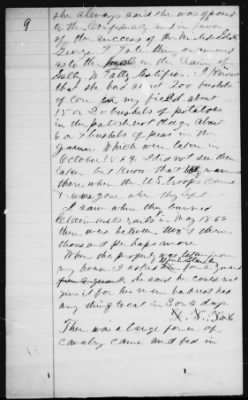 9
she always said she was opposed
to the Confederacy and in favor
of the success of the United States
George T. being examined
as to the in the claim of
Sally testifies: I know
that she had at least 200 bushels
of corn in my field about
15 or 20 bushels of potatoes
in the patch not dug, about
6 or 7 bushels of peas in the
Which were taken in
October 1864. I did not see them
taken but Know that they were
there when the U.S. troops came
& was gone when they left
I saw when they burned
Claimant's rails in May 1864
there were between two & three
thousand perhaps more
When the property was taken from
my house I asked for a guard
he said he could not
give it for his men had not had
any thing to eat in 3 or 4 days
There was a large force of
cavalry came and fed in